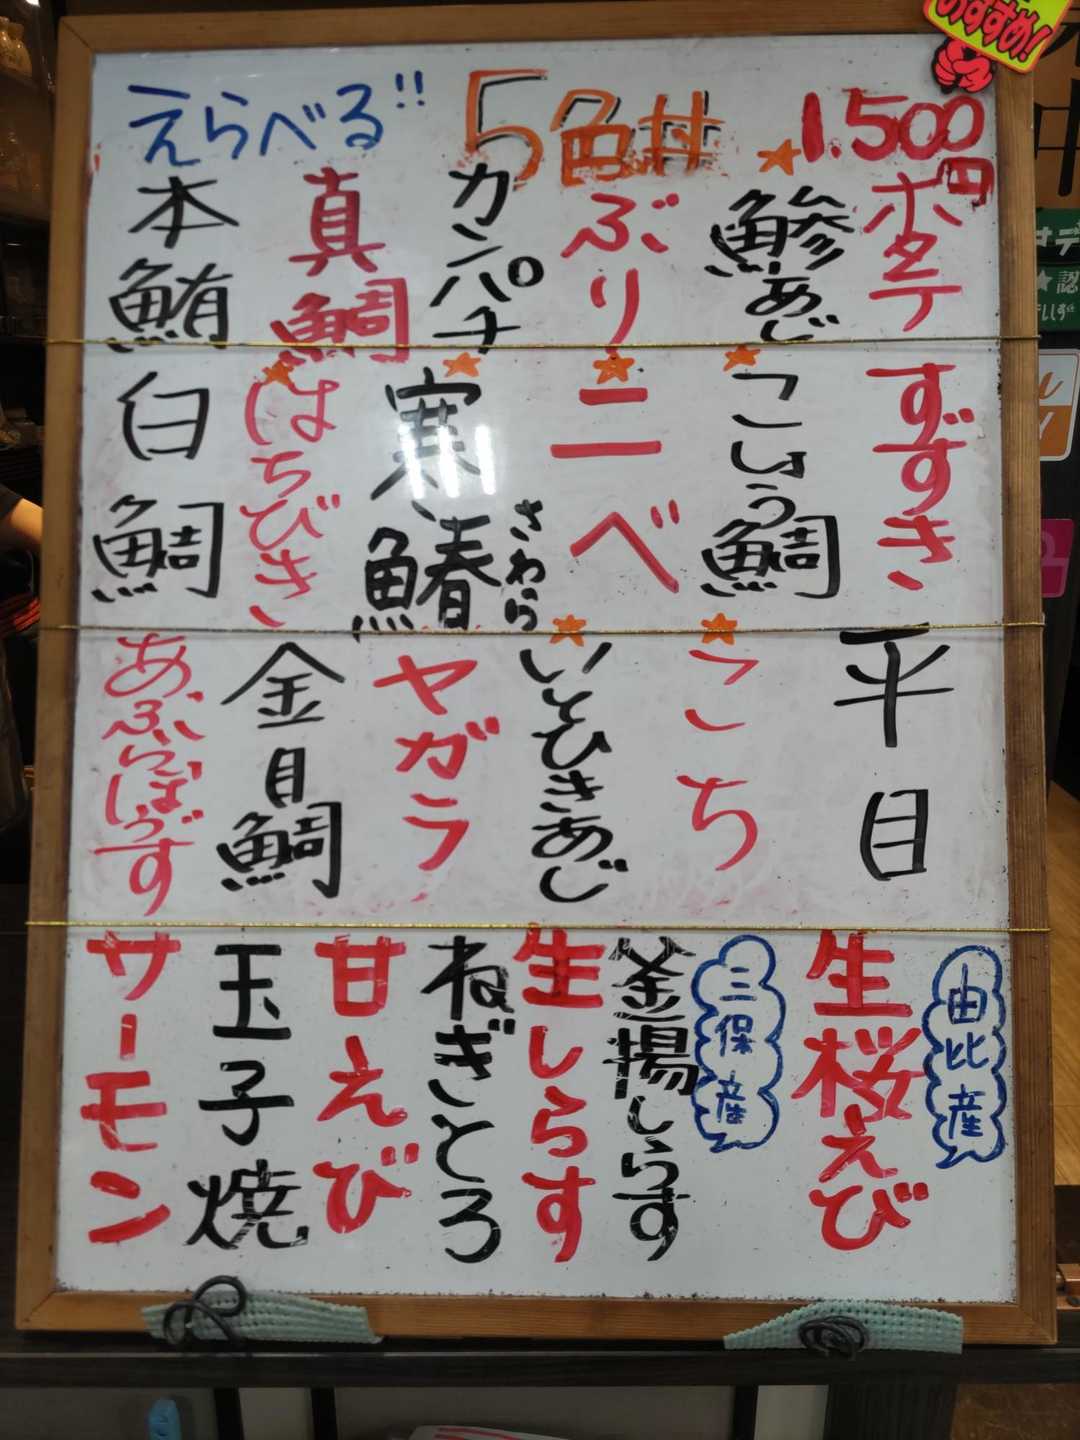 おすすめ!
えらべる!! 5色丼 1.500円
ホタテ
鯵あじ
ぶり
カンパチ
真鯛
本鮪
すずき
こしょう鯛
ニベ
寒鰆 さわら
はちびき
白鯛
平目
こち
いとひきあじ
ヤガラ
金目鯛
あぶらぼうず
由比産
生桜えび
三保産
釜揚しらす
生しらす
ねぎとろ
甘えび
玉子焼
サーモン